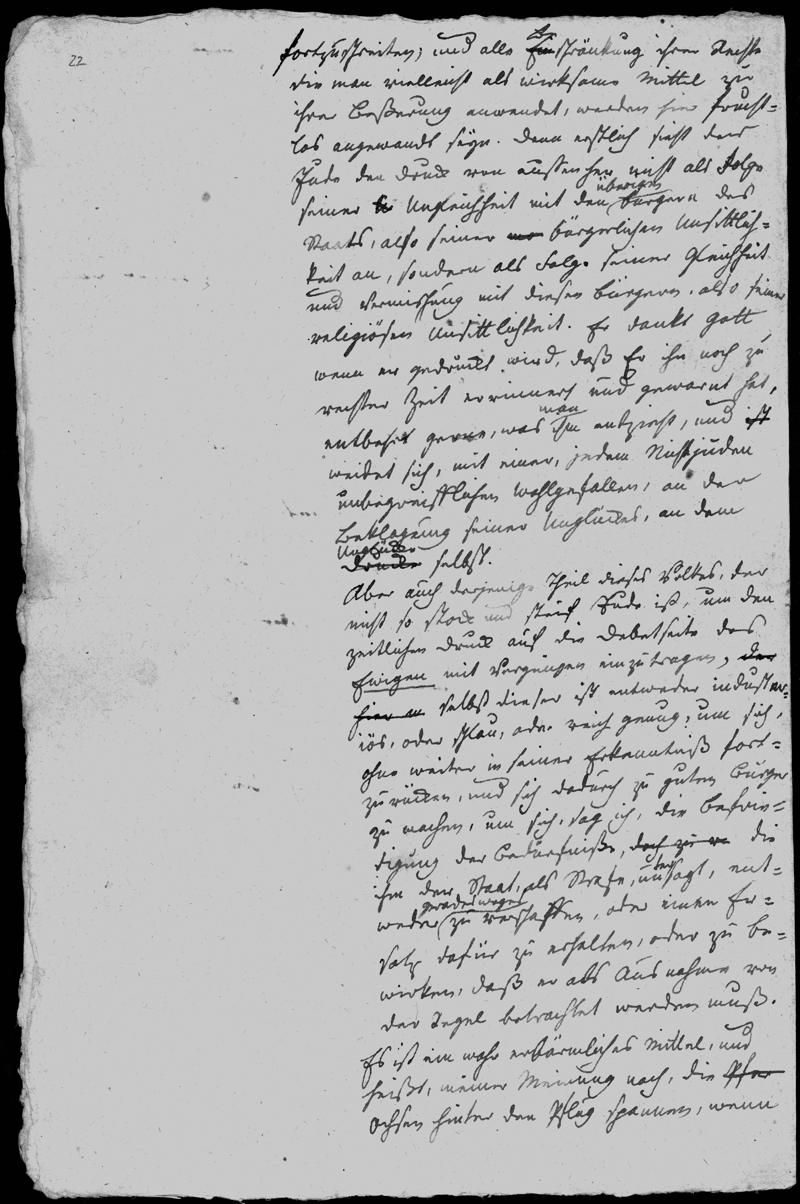 22
fortzuschreiten; und alle Einschränkung ihrer Rechte
die man vielleicht als wirksame Mittel zu
ihrer Beßerung anwendet, werden hier frucht=
los angewandt seyn. Denn erstlich sieht der
Jude den Druck von aussen her nicht als Folge
übrigen
seiner Ungleichheit mit den Bürgern des
Staats, also seiner bürgerlichen Unsittlich=
keit an, sondern als Folge seiner Gleichheit
und Vermischung mit diesen Bürgern, also seiner
religiösen Unsittlichkeit. Er dankt Gott
wenn er gedruckt wird, daß Er ihn noch zu
rechter Zeit erinnert und gewarnt hat,
man
entbehrt gerne, was ihm entzieht, und ist
weidet sich, mit einem, jedem Nichtjuden
unbegreifflichen Wohlgefallen, an der
Beklagung seines Unglückes, an dem
Unglücke
Drucke selbst.
Aber auch derjenige Theil dieses Volkes, der
nicht so stock und steif Jude ist, um den
zeitlichen Druck auf die Debetseite des
Ewigen mit Vergnügen einzutragen, der
hier selbst dieser ist entweder industri=
iös, oder schlau, oder reich genug, um sich,
ohne weiter in seiner Erkenntniß fort=
zurücken, und sich dadurch zum guten Bürger
zu machen, um sich, sag ich, die Befrie=
digung der Bedürfniße, doch zu die
ihm der Staat, als Strafe, untersagt, ent=
geradesweges
weder zu verschaffen, oder einen Er=
satz dafür zu erhalten, oder zu be=
wirken, daß er als Ausnahme von
der Regel betrachtet werden muß.
Es ist ein wahr erbärmliches Mittel, und
heißt, meiner Meinung nach, die Pfer
Ochsen hinter den Pflug spannen, wenn